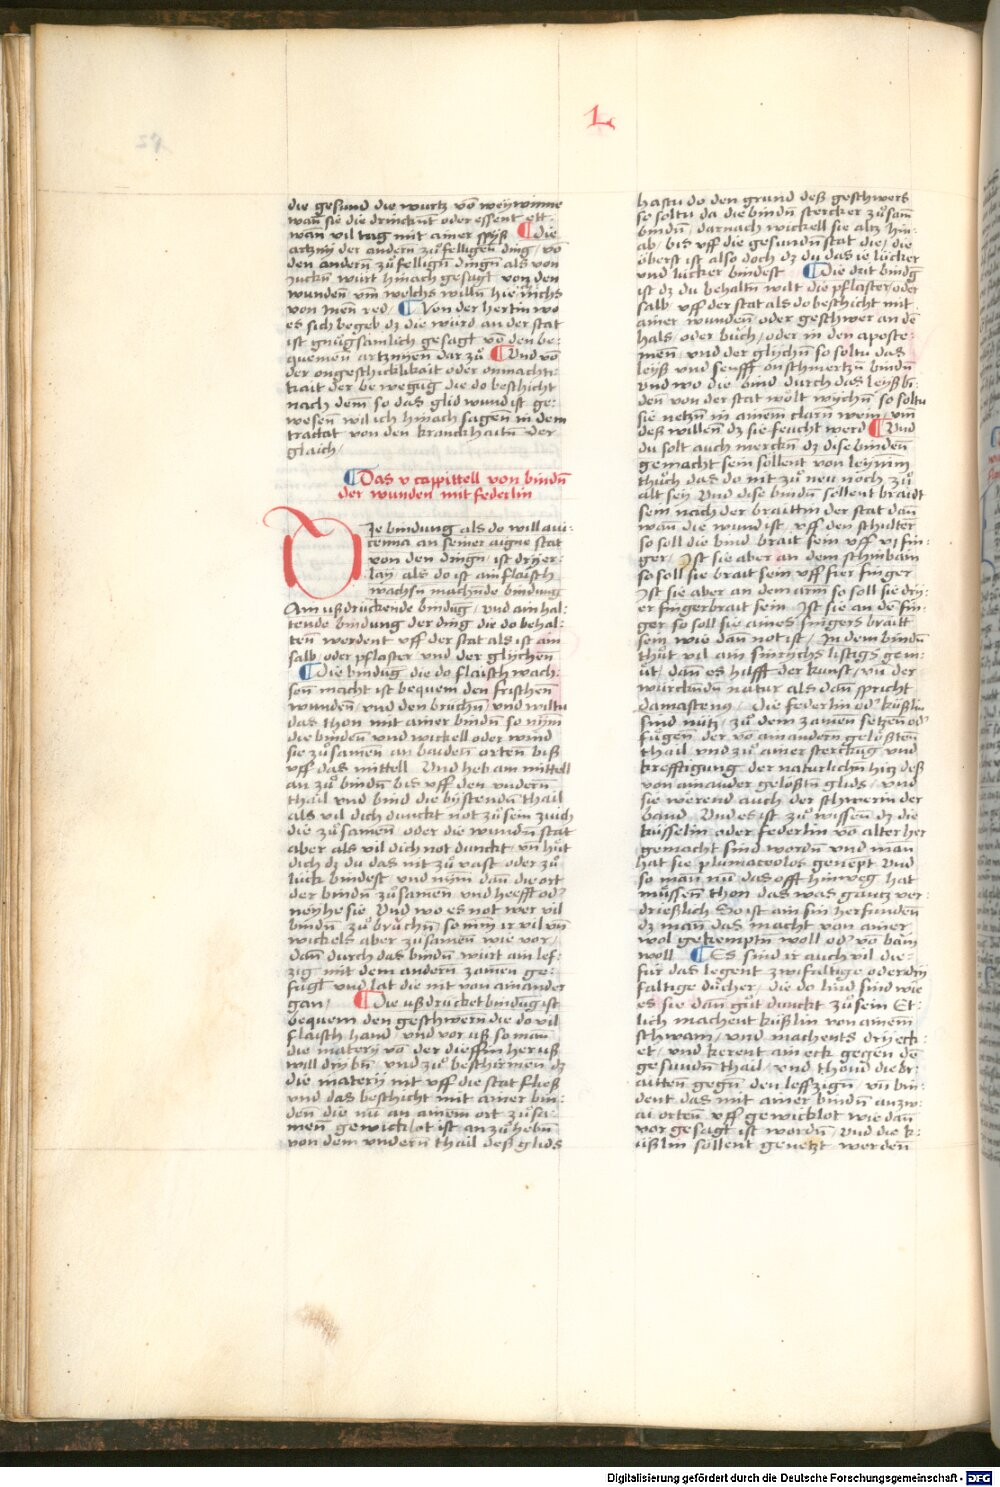 L
die gesund die wurtz võ weywinne
wañ sie die drinckñt oder essent ett-
wan vil tag mit ainer spÿß ¶ die
artzny der andern zůfelligen ding / võ
den andern zůfelligñ dingñ als von
Juckñ würt hinach gesagt von den
wunden vm̃ welchs willñ hie nichs
von Inen red ¶ Von der hertin wo
es sich begeb dz die würd an der stat
ist gnůgsamlich gesagt võ den be-
quemen artznyen dar zů ¶ Und võ
der ongeschicklikait oder onmacht-
kait der bewegũg die do beschicht
nach dem so das glid wund ist ge-
wesen wil ich hinach sagen in dem
tractat von den kranckhaitñ der
glaich /
¶ Das v cappittell von bindñ
der wunden mit federlin
DIe bindung als do will aui-
cenna an seiner aigne stat
von den dingñ / ist dryer-
lay als do ist ain flaisch
wachsñ machende bindung
Ain ußdrückende bindũg / vnd ain hal-
tende bindung der ding die do behal-
ten werdent vff der stat als ist ain
salb oder pflaster vnd der glychen
¶ Die bindũg die do flaisch wach-
señ macht ist bequem den frischeñ
wunden / vnd den brüchñ vnd wiltu
das thon mit ainer bindñ so nÿm
die binden vnd wickell oder wind
sie zůsamen an baiden orten biß
vff das mittell Und heb am mittell
an zů bindñ biß vff den vndern
thail vnd bind die bystendñ thail
als vil dich dunckt not zů sein zuich
die zůsamen oder die wundñ stat
aber als vil dich not dunckt / vñ hüt
dich dz du das nit zů vast oder zů
lück bindest vnd nÿm dañ die ort
der bindñ zůsamen vnd heefft od'
neyhe sie Und wo es not wer vil
bindñ zů bruchñ / so nim ir vil vñ
wickels aber zůsamen wie vor /
dañ durch das bindñ würt ain lef-
zig mit dem andern zamen ge-
fügt vnd lat die nit von ainander
gan / ¶ Die ußdrücket bindũg ist
bequem den geschwern die do vil
flaisch hand / vnd vor uß so man
die matery võ der dieffin her uß
will drybñ vnd zů beschirmen dz
die matery nit vff die stat fließ
vnd das beschicht mit ainer bin-
den die nu an ainem ort zůsa-
men gewicklot ist an zů hebñ
von dem vndern thail deß glids
hastu do den grund deß geschwers
so soltu da die bindñ stercker zůsam̃
bindñ / darnach wickell sie altz hin-
ab / bis vff die gesundñ stat die / die
öberst ist also doch dz du das ie lücker
vnd lücker bindest ¶ Die drit bindũg
ist dz du behaltñ wilt die pflaster oder
salb vff der stat als do beschicht mit
ainer wunden oder geschwer an dẽ
hals / oder bůch / oder in den aposte-
men / vnd der glychñ so soltu das
leyß vnd senfft on schmertzñ bindñ
vnd wo die bind durch das leyß bi-
den von der stat wölt wychñ so soltu
sie netzñ in ainem clarñ wein / vm̃
deß willen dz sie feucht werd ¶ Und
du solt auch merckñ dz dise binden
gemacht sein söllent von leynim
thůch das do nit zů neu noch zů
alt sey Und dise bindñ söllent braidt
sein nach der braittin der stat dañ
wañ die wund ist / vff den schulter
so soll die bind brait sein vff vj fin-
ger / Ist sie aber an dem schinbain
so soll sie brait sein vff fier finger
Ist sie aber an dem arm so soll sie dry-
er fingerbrait sein Ist sie an dẽ fin-
ger so soll sie aines fingers braitt
sein wie dañ not ist / In dem bindñ
thůt vil ain sinrychs listigs gem-
üt / dañ es hilfft der kunst / vñ der
würckndñ natur als dañ spricht
damastenus / die federlin od' küßlin
sind nütz / zů dem zamen setzen od'
fügen der võ ainandern gelößten
thail vnd zů ainer sterckũg vnd
krefftigung der naturlichñ hitz deß
von ainander gelößtñ glids / vnd
sie wörend auch der schwerin der
band Und es ist zů wissen dz die
küsselin oder federlin võ alter her
gemacht sind wordñ vnd man
hat sie plumaceolos genept vnd
so man nů das offt hinweg hat
müssen thon das was gantz ver-
drießlich So ist ain sin herfunden
dz man das macht von ainer
wol gekemptñ woll od' võ bam̃
woll ¶ Es sind ir auch vil die-
für das legent zwifaltige oder dry
faltige dücher / die do lind sind wie
es sie dañ gůt dunckt zů sein Et-
lich machent küßlin von ainem
schwam / vnd machents dryeck-
et / vnd kerent ain eck gegen dẽ
gesundñ thail / vnd thoñd die br-
aitten gegñ den leffzigñ / vñ bin-
dent das mit ainer bindñ an zw-
ai orten vff gewicklot wie dañ
vor gesagt ist wordñ / Und die k-
üßlin söllent genetzt werden
Digitalisierung gefördert durch die Deutsche Forschungsgemeinschaft - DFG